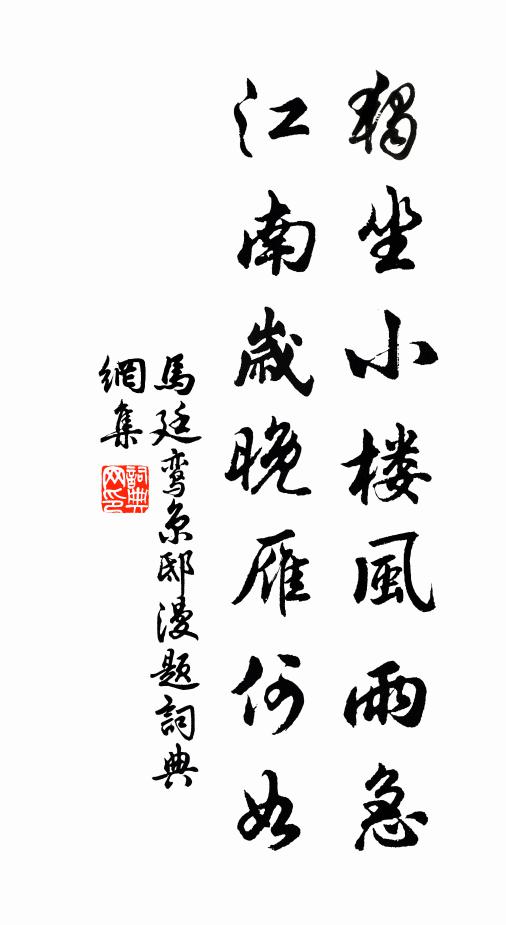 獨坐小楼風雨急
江南歲晚雁何如
馬廷鸾京邸漫题詞典
網集
詞典網印